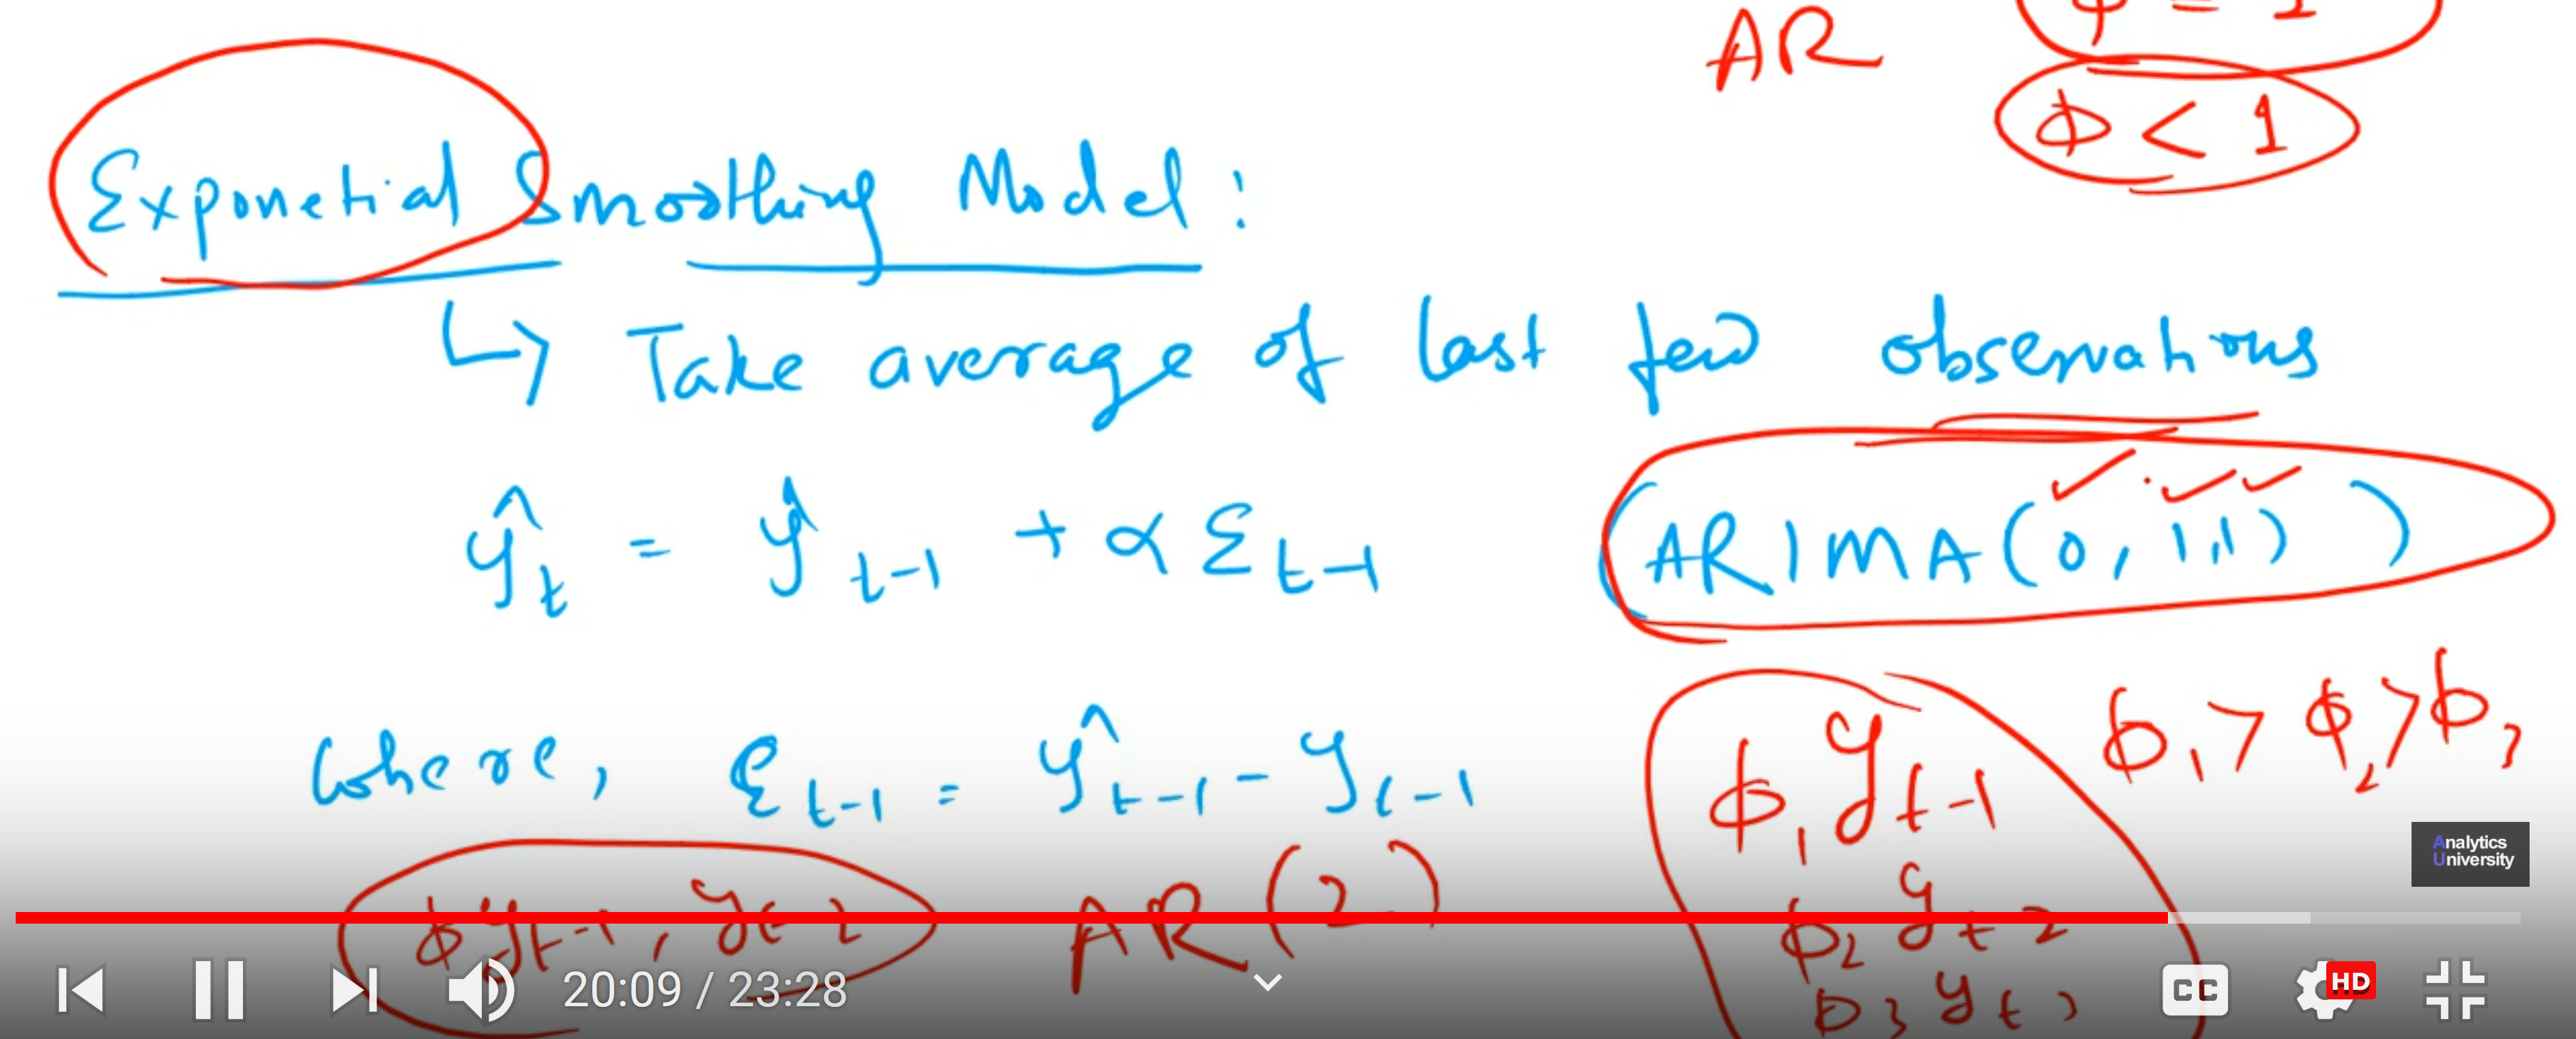 AR
ϕ = 1
ϕ < 1
Exponetial Smoothing Model :
↳ Take average of last few observations
ŷt = ŷt-1 + α Σt-1 (ARIMA(0,1,1))
where, Ɛt-1 = ŷt-1 - yt-1
ϕ1 > ϕ2 > ϕ3
ϕ1 yt-1
ϕ yt-1, yt-2 AR(2)
ϕ2 yt-2
ϕ3 yt-3
Analytics
University
20:09 / 23:28
CC
HD